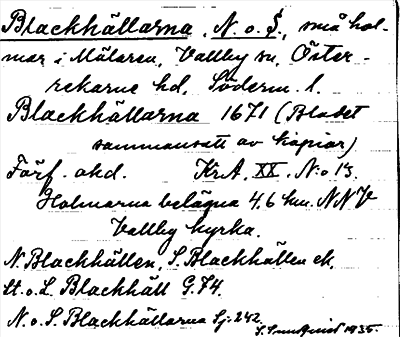 Blackhällarna, N. o. S., små hol-
mar i Mälaren, Vallby sn, Öster-
rekarne hd, Söderm. l.
Blackhällarna 1671 (Bladet
sammansatt av kopior)
Förf. okd. KrA, XX. N:o 13.
Holmarna belägna 4.6 km. NNV
Vallby kyrka.
N. Blackhällen, S. Blackhällen ek,
St. o. L. Blackhäll G. 74.
N. o. S. Blackhällarna Sj. 242.
S. Sundquist 1935.